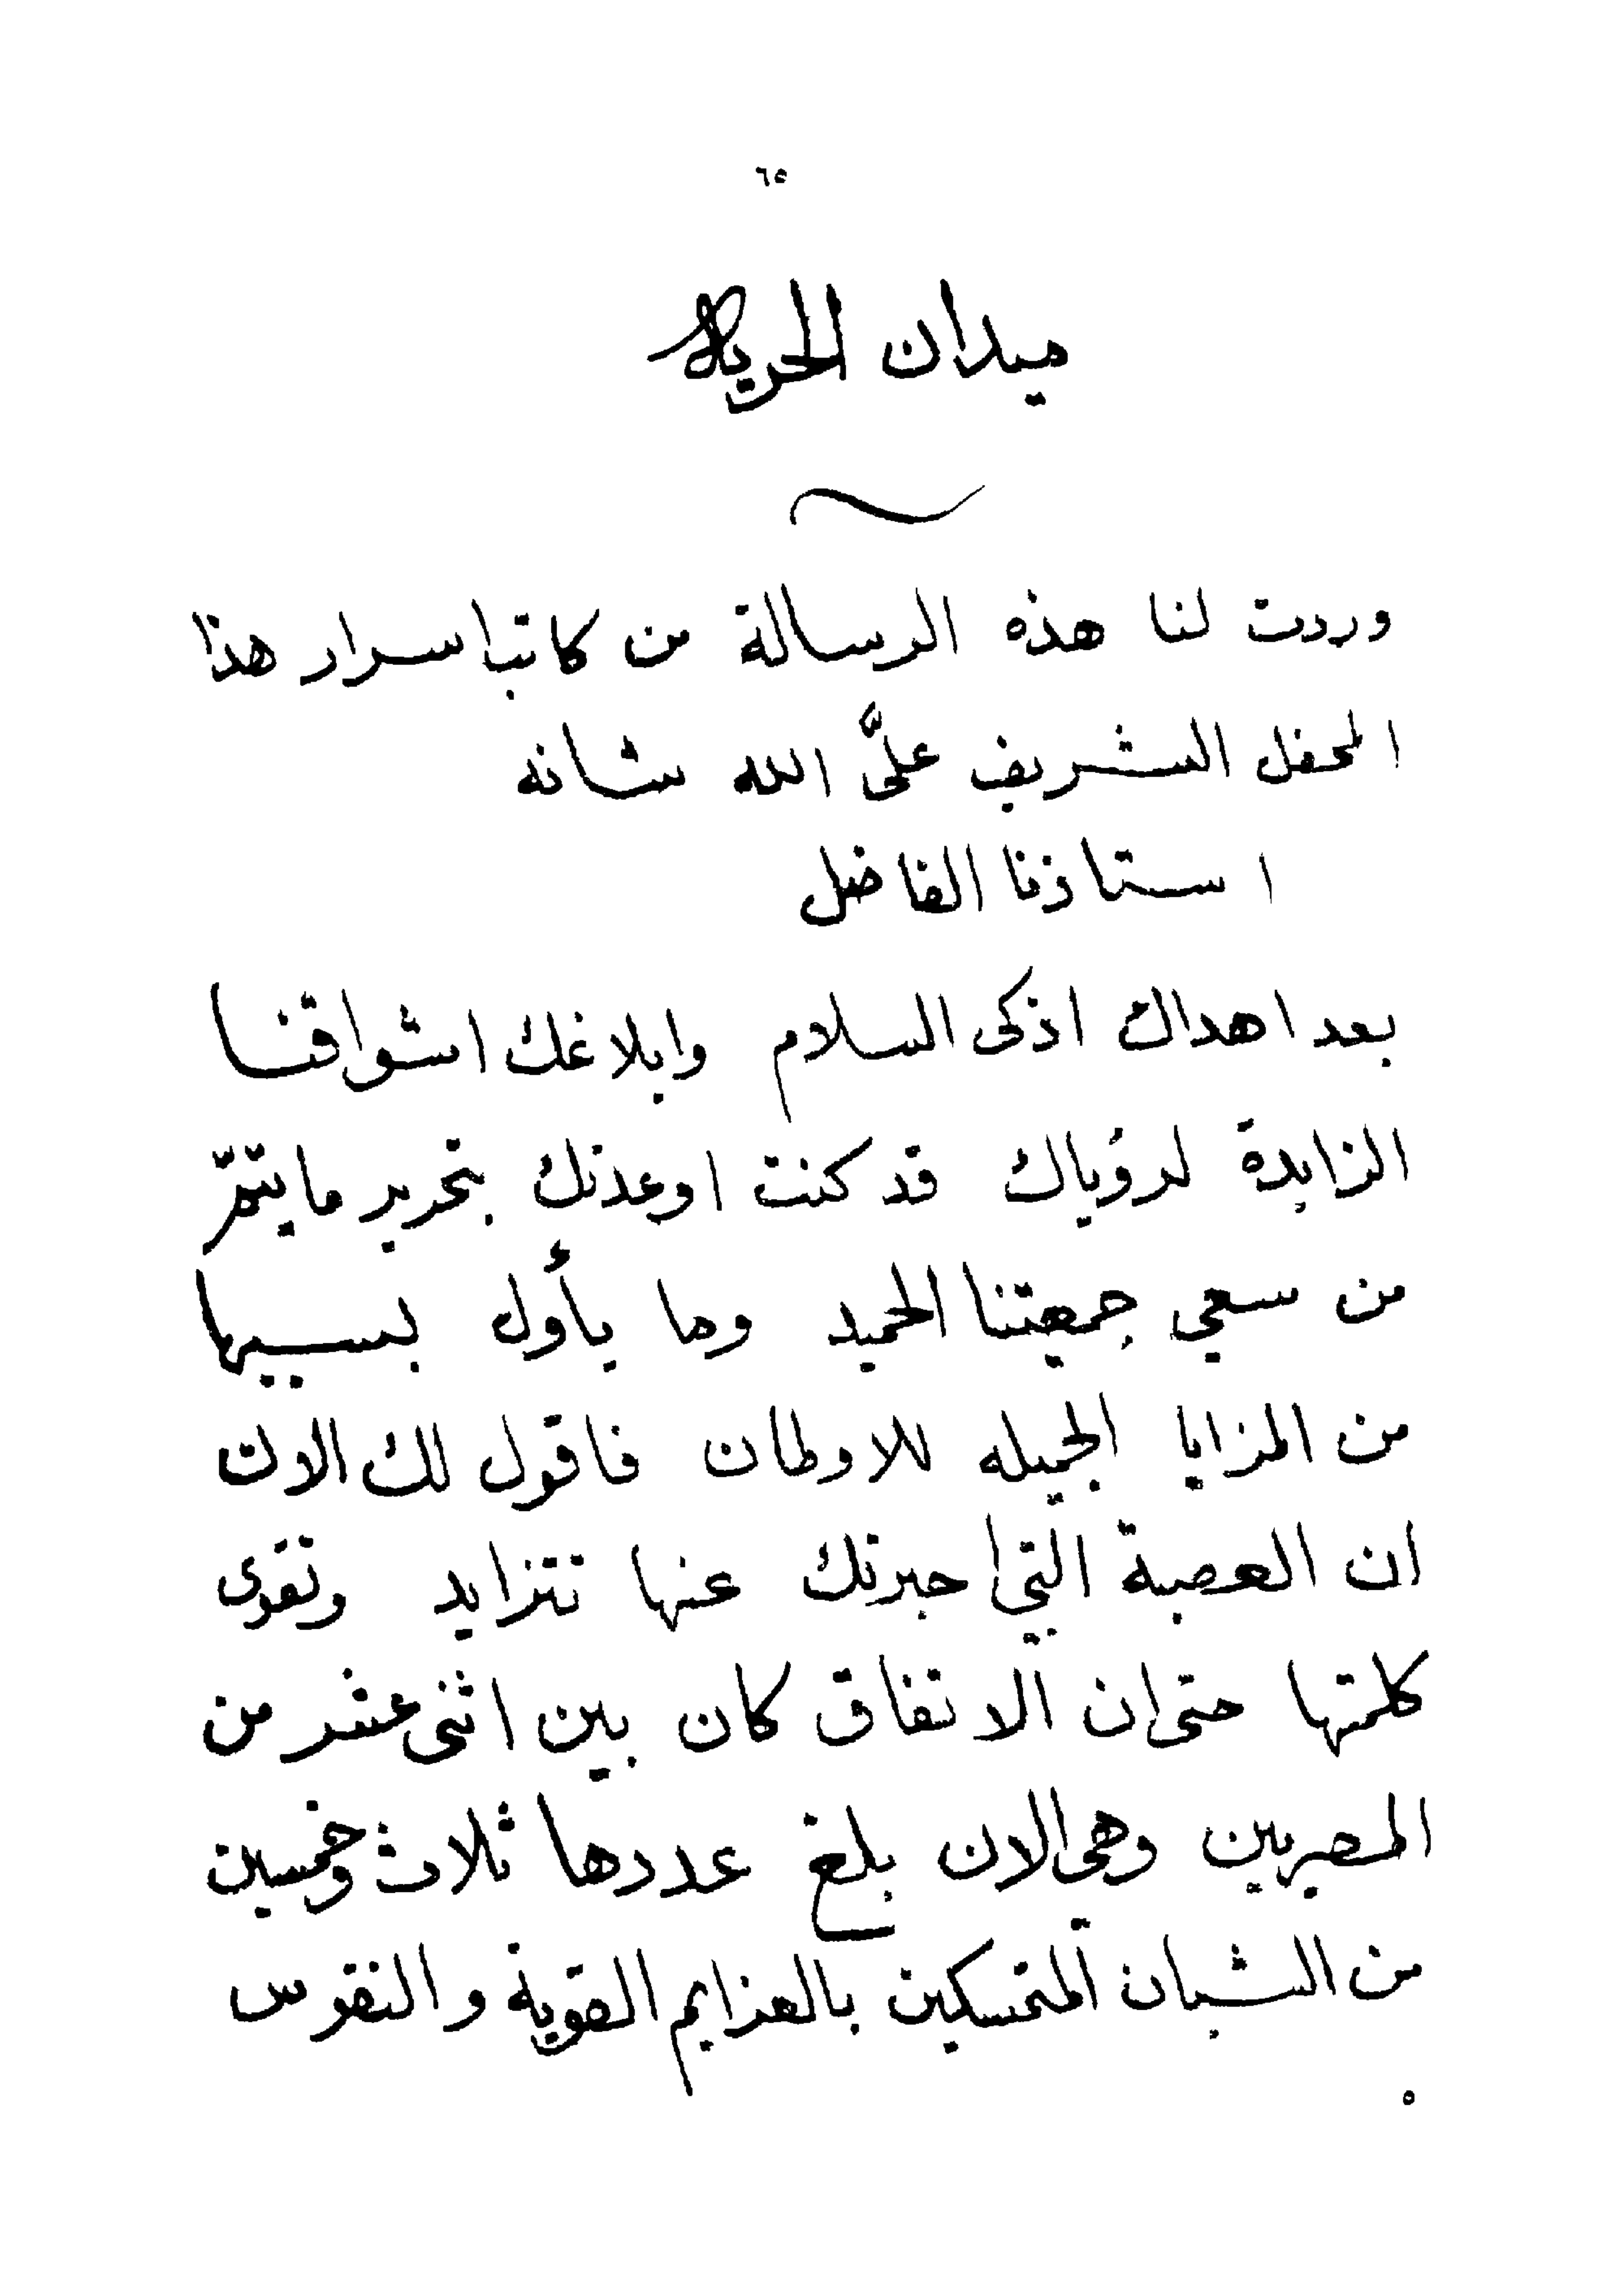 ٦٥
ميدان الحرية
وردت لنا هذه الرسالة من كاتب اسرار هذا
المحفل الشريف علىَّ الله شانه
استاذنا الفاضل
بعد اهداك اذكى السلام وابلاغك اشواقنا
الزايدة لرؤياك قد كنت اوعدتك بتحرير ما يتمّ
من سعي جمعتنا الحميد وما يأول بسببها
من المزايا الجميله للاوطان فاقول لك الان
ان العصبة التي اخبرتك عنها تتزايد وتقوى
كلمتها حتى ان الاتفاق كان بين اثنى عشر من
المصريين وهى الان بلغ عددها ثلاث وخمسين
من الشبان المتمسكين بالعزايم القوية والنفوس
٥